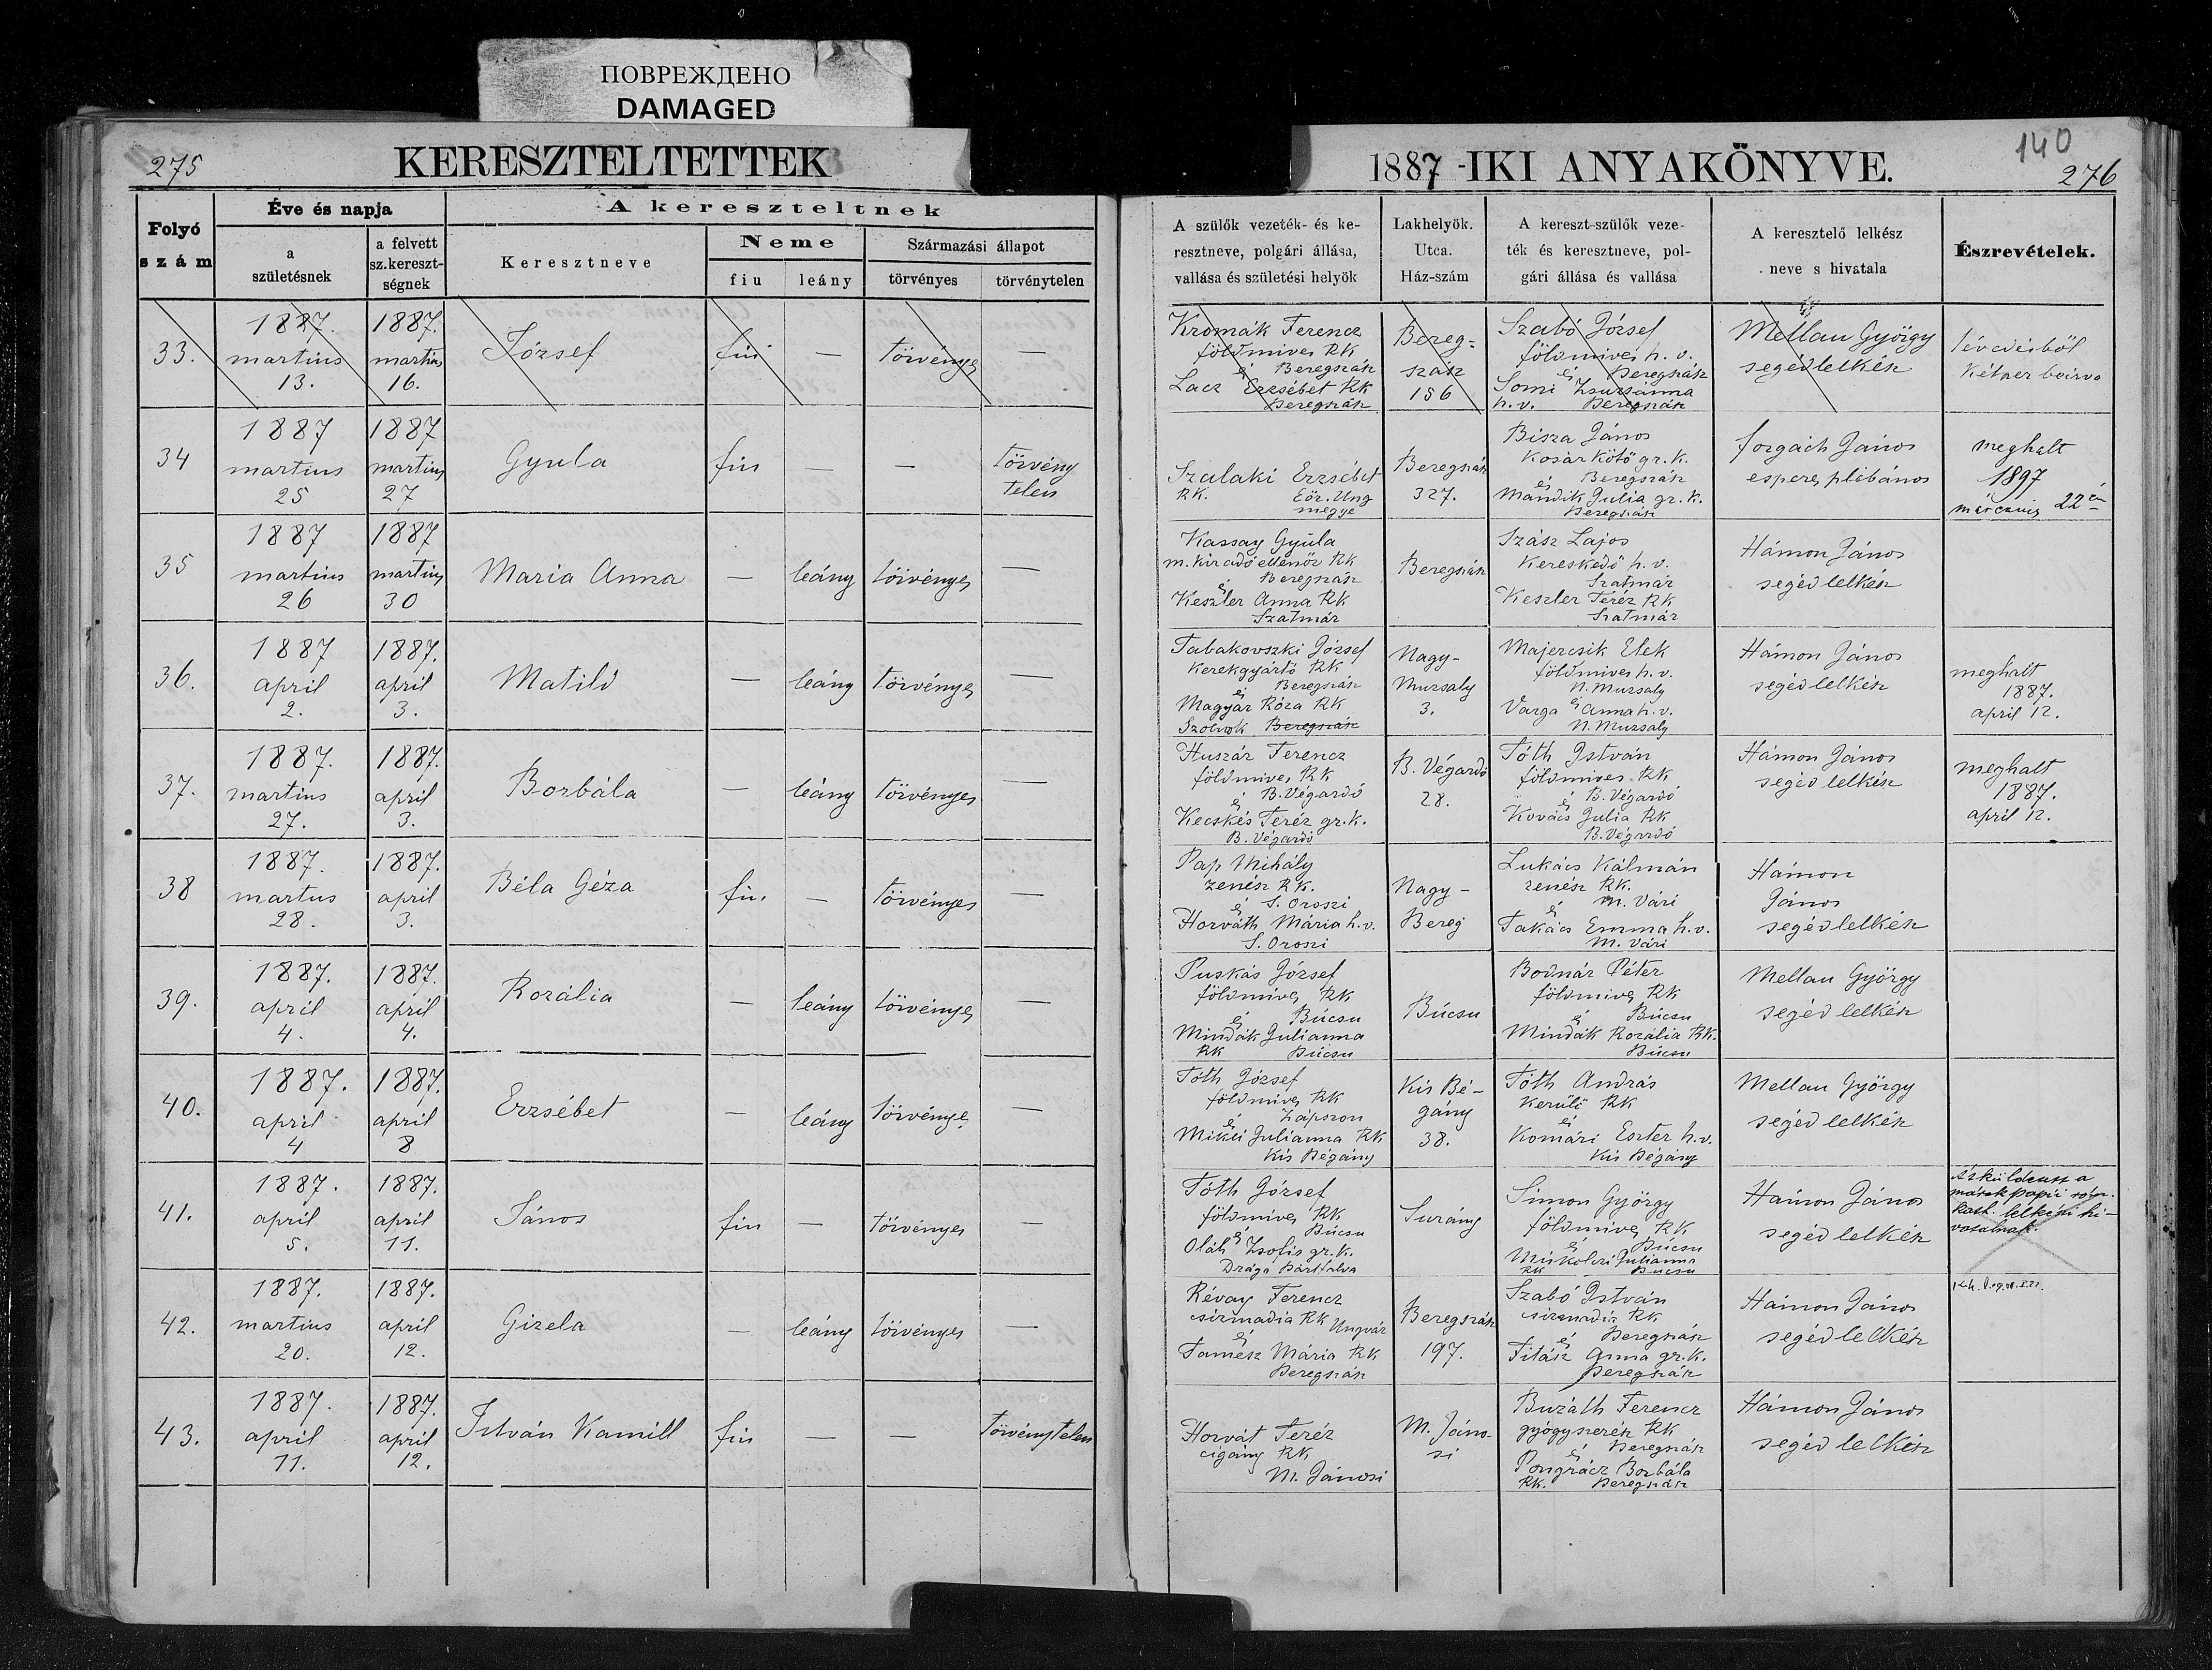 ПОВРЕЖДЕНО
DAMAGED
275
KERESZTELTETTEK
1887 -IKI ANYAKÖNYVE.
140
276
Folyó
szám
Éve és napja
a
születésnek
a felvett
sz.kereszt-
ségnek
A kereszteltnek
Keresztneve
Neme
fiu
leány
Származási állapot
törvényes
törvénytelen
A szülők vezeték- és ke-
resztneve, polgári állása,
vallása és születési helyök
Lakhelyök.
Utca.
Ház-szám
A kereszt-szülők veze-
ték és keresztneve, pol-
gári állása és vallása
A keresztelő lelkész
neve s hivatala
Észrevételek.
33.
1887.
martius
13.
1887.
martius
16.
József
fiu
—
törvényes
—
Kromák Ferencz
földmives RK
Beregszász
és
Lacz Erzsébet RK
Beregszász
Bereg-
szász
156
Szabó József
földmives h. v.
és Beregszász
Somi Zsuzsánna
h. v. Beregszász
Mellau György
segédlelkész
tévedésből
kétszer beirva
34
1887
martius
25
1887
martius
27
Gyula
fiu
—
—
törvény
telen
Szalaki Erzsébet
RK. Eőr. Ung
megye
Beregszász
327.
Bisza János
Kosárkötő gr. k.
és Beregszász
Mandik Julia gr. k.
Beregszász
forgách János
esperes plébános
meghalt
1897
márczius 22én
35
1887
martius
26
1887
martius
30
Maria Anna
—
leány
törvényes
—
Kassay Gyula
m. kir adó ellenőr RK
Beregszász
és
Keszler Anna RK
Szatmár
Beregszász
Szász Lajos
Kereskedő h. v.
Szatmár
Keszler Teréz RK
Szatmár
Hámon János
segédlelkész
36.
1887
april
2.
1887.
april
3.
Matild
—
leány
törvényes
—
Tabakovszki József
Kerekgyártó RK
Beregszász
és
Magyar Róza RK
Szolnok Beregszász
Nagy-
Muzsaly
3.
Majercsik Elek
földmives h. v.
N. Muzsaly
Varga és Anna h. v.
N. Muzsaly
Hámon János
segédlelkész
meghalt
1887.
april 12.
37.
1887.
martius
27.
1887.
april
3.
Borbála
—
leány
törvényes
—
Huszár Ferencz
földmives RK
és B. Végardó
Kecskés Teréz gr. k.
B. Végardó
B. Végardó
28.
Tóth István
földmives RK
és B. Végardó
Kovács Julia RK
B. Végardó
Hámon János
segédlelkész
meghalt
1887.
april 12.
38
1887.
martus
28.
1887.
april
3.
Béla Géza
fiu.
—
törvényes
—
Pap Mihály
zenész RK.
és S. Oroszi
Horváth Mária h. v.
S. Oroszi
Nagy -
Bereg
Lukács Kálmán
zenész RK.
és M. Vári
Takács Emma h. v.
M. Vári
Hámon
János
segédlelkész
39.
1887.
april
4.
1887.
april
4.
Rozália
—
leány
törvényes
—
Puskás József
földmives RK
és Búcsu
Mindák Julianna
RK Búcsu
Búcsu
Bodnár Péter
földmives RK
és Búcsu
Mindák Rozália RK.
Búcsu
Mellau György
segédlelkész
40.
1887.
april
4
1887.
april
8
Erzsébet
—
leány
törvényes
—
Tóth József
földmives RK
és Zápszon
Julianna RK
Kis Bégány
Kis Bé-
gány
38.
Tóth András
Kerülő RK
és
Komári Eszter h. v.
Kis Bégány
Mellau György
segédlelkész
41.
1887.
april
5.
1887.
april
11.
János
fiu
—
törvényes
—
Tóth József
földmives RK
és Búcsu
Oláh Zsofis gr. k.
Drága Bártfalva
Surány
Simon György
földmives RK
és Búcsu
Miskolczi Julianna
RK Búcsu
Hámon János
segédlelkész
a
róm.
kath. lelkészi hi-
vatalnak.
42.
1887.
martius
20.
1887.
april
12.
Gizela
—
leány
törvényes
—
Révay Ferencz
csizmadia RK Ungvár
és
Tamesz Mária RK
Beregszász
Beregszász
197.
Szabó István
csizmadia RK
és Beregszász
Titász Anna gr. k.
Beregszász
Hámon János
segédlelkész
43.
1887.
april
11.
1887.
april
12.
István Kamill
fiu
—
—
törvénytelen
Horvát Teréz
cigány RK
M. Jánosi
M. Jáno-
si
Buzáth Ferencz
gyógyszerész RK
és Beregszász
Pongrácz Borbála
RK. Beregszász
Hámon János
segédlelkész